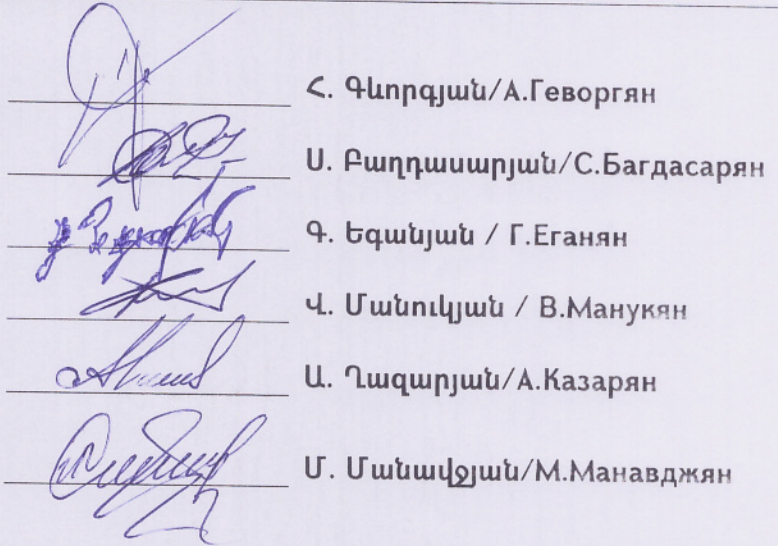 Հ. Գևորգյան/А.Геворгян
Ս. Բաղդասարյան/С.Багдасарян
Գ. Եգանյան / Г.Еганян
Վ. Մանուկյան / В.Манукян
Ա. Ղազարյան/А.Казарян
Մ. Մանավջյան/М.Манавджян